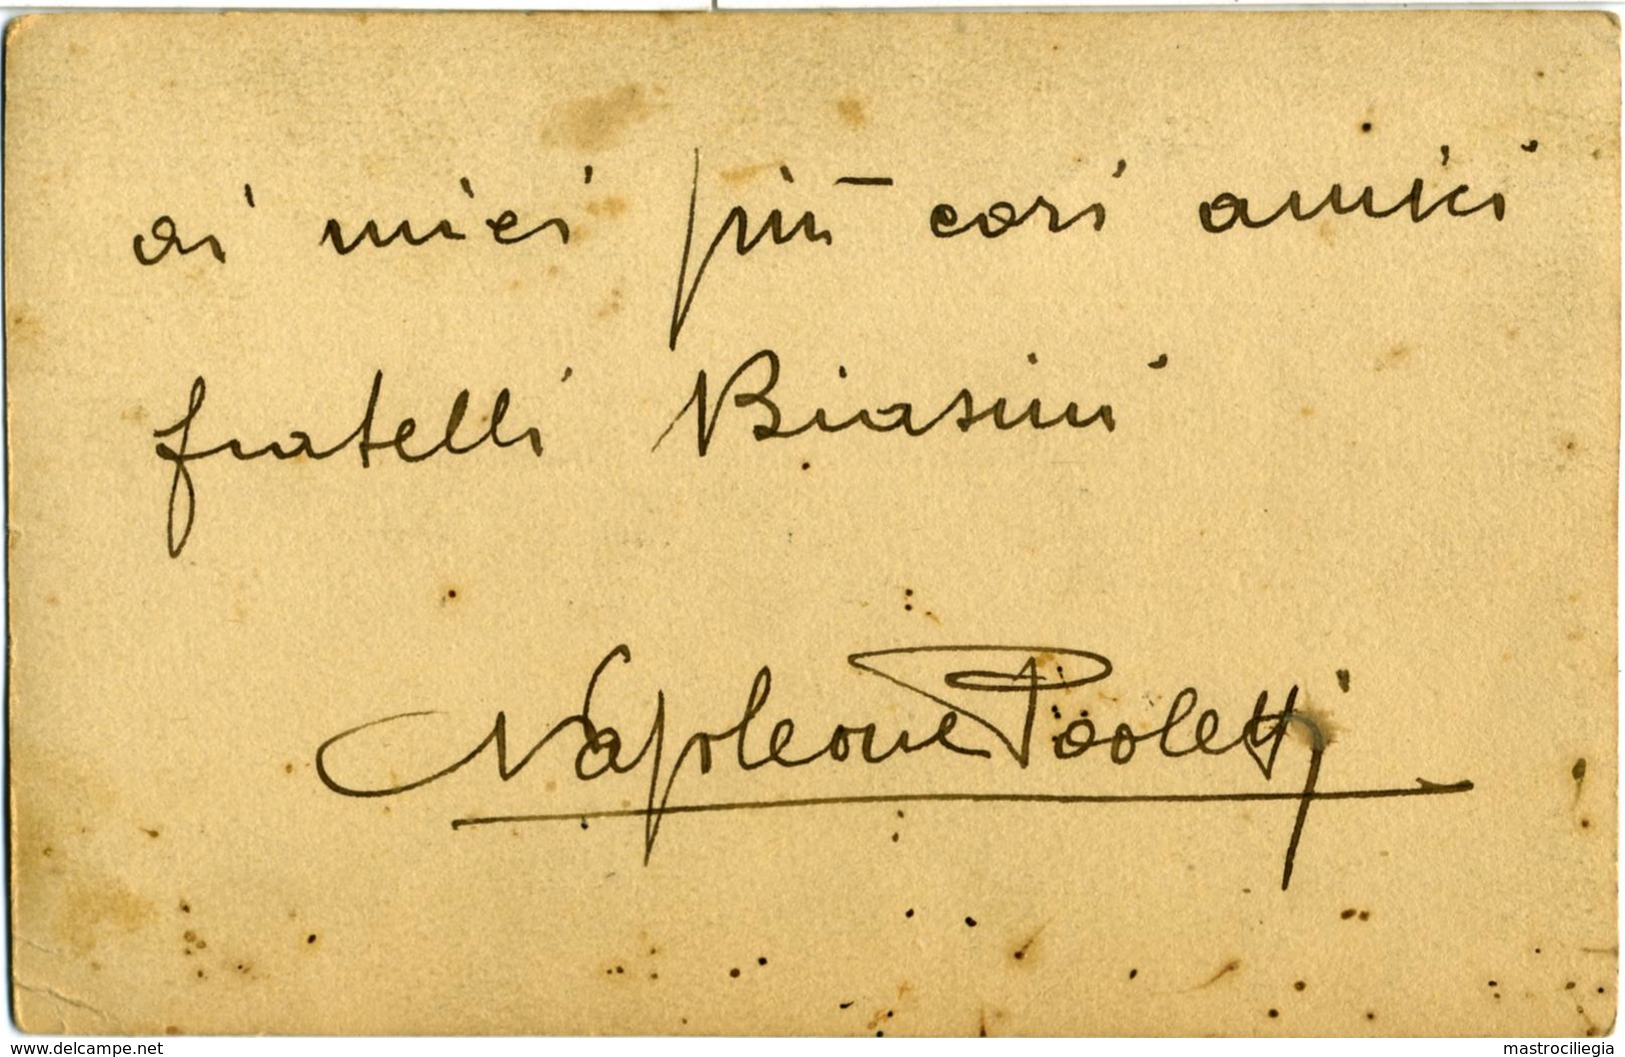 ai miei più cari amici
fratelli Biasini
Napoleone Paoletti
www.delcampe.net
mastrociliegia